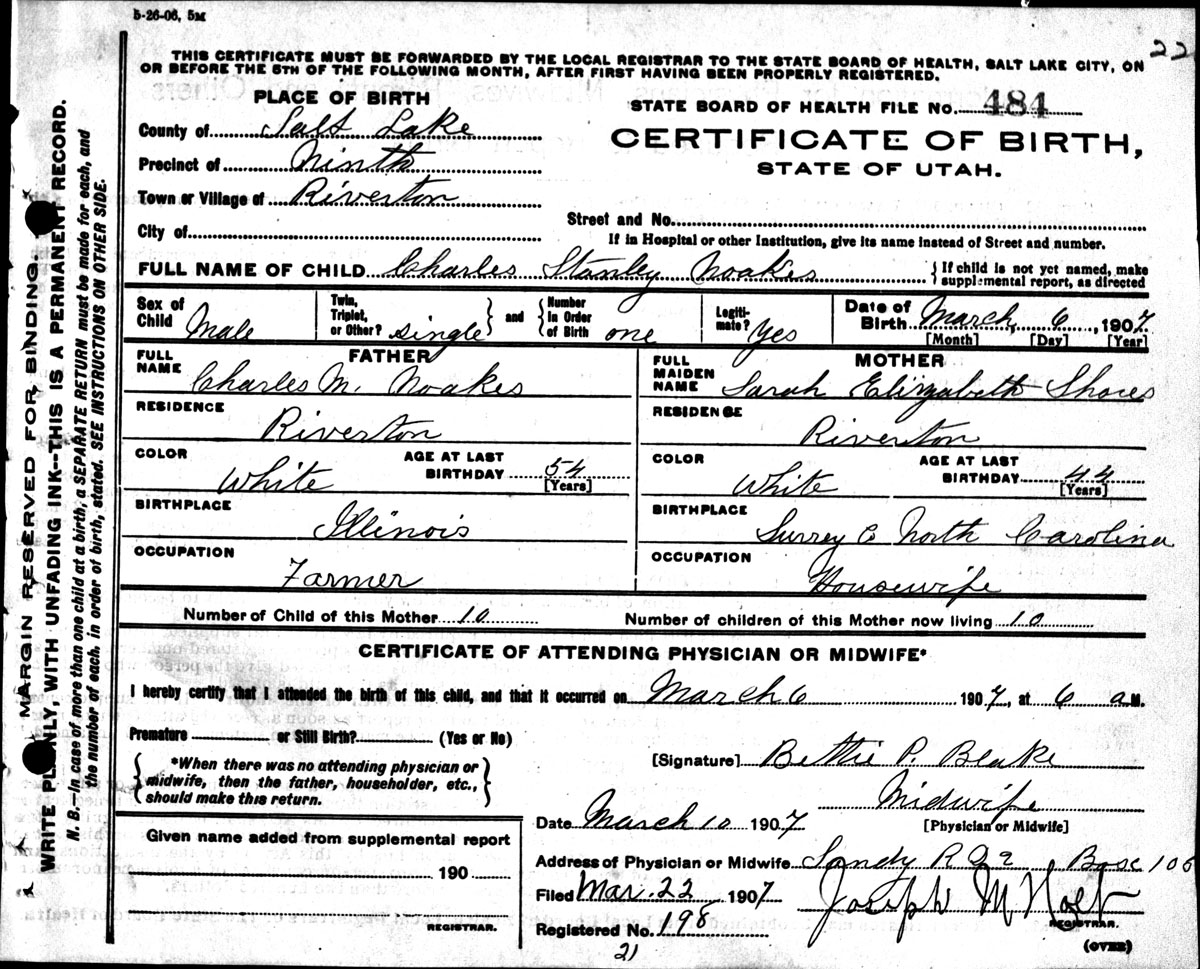 5-26-06, 5M
22
THIS CERTIFICATE MUST BE FORWARDED BY THE LOCAL REGISTRAR TO THE STATE BOARD OF HEALTH, SALT LAKE CITY, ON
OR BEFORE THE 5TH OF THE FOLLOWING MONTH, AFTER FIRST HAVING BEEN PROPERLY REGISTERED.
PLACE OF BIRTH
STATE BOARD OF HEALTH FILE NO. 484
County of Salt Lake
CERTIFICATE OF BIRTH,
Precinct of Ninth
STATE OF UTAH.
Town or Village of Riverton
Street and No.
City of
If in Hospital or other Institution, give its name instead of Street and number.
FULL NAME OF CHILD Charles Stanley Noakes
{ If child is not yet named, make
supplemental report, as directed
Sex of Child Male
Twin, Triplet, or Other? single
and
Number in Order of Birth one
Legitimate? Yes
Date of Birth March 6, 1907
[Month] [Day] [Year]
FATHER
MOTHER
FULL NAME Charles M. Noakes
FULL MAIDEN NAME Sarah Elizabeth Shores
RESIDENCE Riverton
RESIDENCE Riverton
COLOR White
AGE AT LAST BIRTHDAY 54 [Years]
COLOR White
AGE AT LAST BIRTHDAY 44 [Years]
BIRTHPLACE Illinois
BIRTHPLACE Surrey C North Carolina
OCCUPATION Farmer
OCCUPATION Housewife
Number of Child of this Mother 10
Number of children of this Mother now living 10
CERTIFICATE OF ATTENDING PHYSICIAN OR MIDWIFE*
I hereby certify that I attended the birth of this child, and that it occurred on March 6 1907, at 6 a M.
Premature or Still Birth? (Yes or No)
{ *When there was no attending physician or
midwife, then the father, householder, etc.,
should make this return. }
[Signature] Bettie P. Blake
Midwife
[Physician or Midwife]
Date March 10 1907
Given name added from supplemental report
190
REGISTRAR.
Address of Physician or Midwife Sandy Box 106
Filed Mar. 22 1907
Joseph M Holt
REGISTRAR.
Registered No. 198
21
(OVER)
MARGIN RESERVED FOR BINDING.
WRITE PLAINLY, WITH UNFADING INK--THIS IS A PERMANENT RECORD.
N. B.—In case of more than one child at a birth, a SEPARATE RETURN must be made for each, and
the number of each, in order of birth, stated. SEE INSTRUCTIONS ON OTHER SIDE.